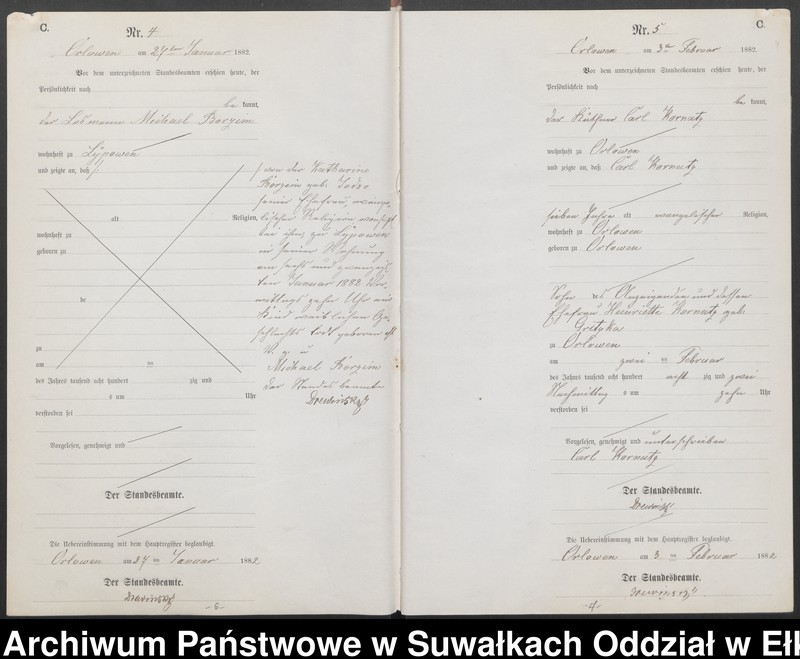 C.
Nr. 4
Orlowen am 27ten Januar 1882.
Vor dem unterzeichneten Standesbeamten erschien heute, der
Persönlichkeit nach
be kannt,
der Losmann Michael Borzim
wohnhaft zu Lypowen
und zeigte an, daß
von der Katharine
geb.
seiner Ehefrau, evange-
lischer Religion wohnhaft
bei ihm, zu Lypowen
in seiner Wohnung
am sechs und zwanzig
ten Januar 1882 Vor-
mittags zehn Uhr ein
Kind weiblichen Ge-
schlechts todt geboren
V. g. u
Michael
Der Standesbeamte
Drewinsky
alt Religion,
wohnhaft zu
geboren zu
de
zu
am ten
des Jahres tausend acht hundert zig und
s um Uhr
verstorben sei
Vorgelesen, genehmigt und
Der Standesbeamte.
Die Uebereinstimmung mit dem Hauptregister beglaubigt.
Orlowen am 27 ten Januar 1882
Der Standesbeamte.
Drewinsky
C.
Nr. 5
Orlowen am 3ten Februar 1882.
Vor dem unterzeichneten Standesbeamten erschien heute, der
Persönlichkeit nach
be kannt,
der Käthner Carl Kornatz
wohnhaft zu Orlowen
und zeigte an, daß Carl Kornatz
sieben Jahre alt evangelischer Religion,
wohnhaft zu Orlowen
geboren zu Orlowen
Sohn des Anzeigenden und dessen
Ehefrau Henriette Kornatz geb.
Grityka
zu Orlowen
am zwei ten Februar
des Jahres tausend acht hundert acht zig und zwei
Nachmittag s um zehn Uhr
verstorben sei
Vorgelesen, genehmigt und unterschrieben
Carl Kornatz
Der Standesbeamte.
Drewinsky
Die Uebereinstimmung mit dem Hauptregister beglaubigt.
Orlowen am 3 ten Februar 1882
Der Standesbeamte.
Drewinsky
Archiwum Państwowe w Suwałkach Oddział w Ełk